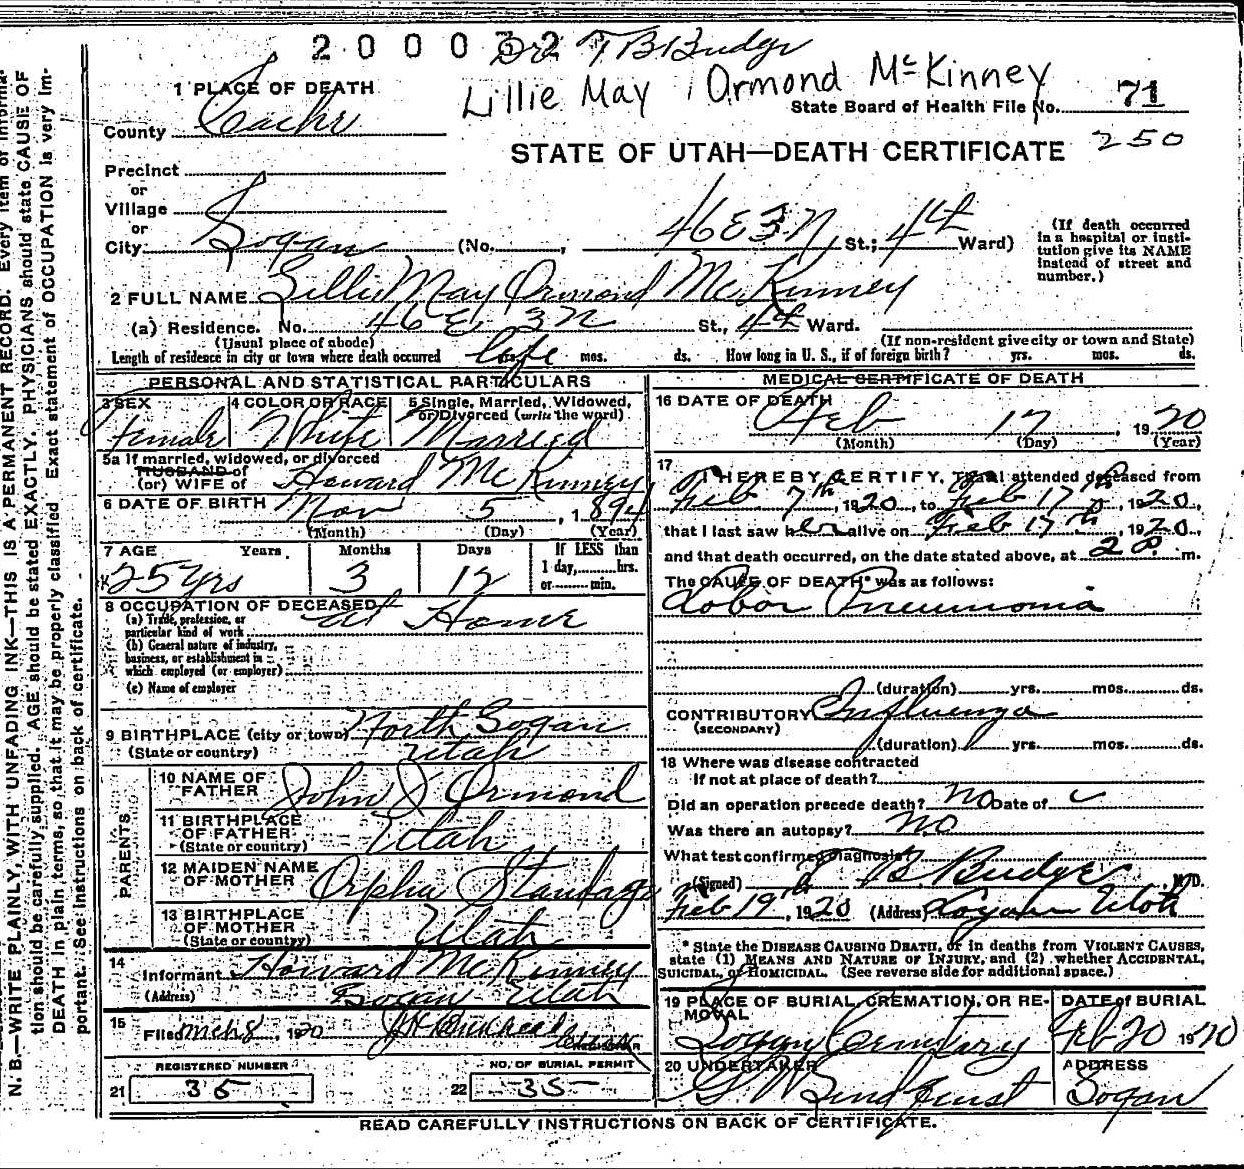 2000
Dr. T B Budge
Lillie May Ormond McKinney
1 PLACE OF DEATH
State Board of Health File No. 71
County Cache
250
STATE OF UTAH—DEATH CERTIFICATE
Precinct
or
Village
or
City Logan (No. , 46 E 3 N St.; 4th Ward)
(If death occurred in a hospital or institution give its NAME instead of street and number.)
2 FULL NAME Lillie May Ormond McKinney
(a) Residence. No. 46 E. 3 N St., 4th Ward.
(Usual place of abode) (If non-resident give city or town and State)
Length of residence in city or town where death occurred life mos. ds. How long in U. S., if of foreign birth? yrs. mos. ds.
PERSONAL AND STATISTICAL PARTICULARS
3 SEX 4 COLOR OR RACE 5 Single, Married, Widowed, or Divorced (write the word).
Female White Married
5a If married, widowed, or divorced
HUSBAND of
(or) WIFE of Howard McKinney
6 DATE OF BIRTH Nov 5, 1894
(Month) (Day) (Year)
7 AGE Years Months Days If LESS than
1 day, hrs.
or min.
25 yrs 3 12
8 OCCUPATION OF DECEASED
(a) Trade, profession, or
particular kind of work at Home
(b) General nature of industry,
business, or establishment in
which employed (or employer)
(c) Name of employer
9 BIRTHPLACE (city or town) North Logan
(State or country) Utah
PARENTS
10 NAME OF FATHER John J Ormond
11 BIRTHPLACE OF FATHER
(State or country) Utah
12 MAIDEN NAME OF MOTHER Orpha Standage
13 BIRTHPLACE OF MOTHER
(State or country) Utah
14
Informant Howard McKinney
(Address) Logan Utah
15
Filed mch 8, 1920
REGISTERED NUMBER NO. OF BURIAL PERMIT
21 35 22 35
MEDICAL CERTIFICATE OF DEATH
16 DATE OF DEATH
Feb 17, 1920
(Month) (Day) (Year)
17
I HEREBY CERTIFY, That I attended deceased from
Feb 7th, 1920, to Feb 17th, 1920,
that I last saw her alive on Feb 17th, 1920,
and that death occurred, on the date stated above, at m.
The CAUSE OF DEATH* was as follows:
Lobar Pneumonia
(duration) yrs. mos. ds.
CONTRIBUTORY Influenza
(SECONDARY)
(duration) yrs. mos. ds.
18 Where was disease contracted
If not at place of death?
Did an operation precede death? no Date of
Was there an autopsy? no
What test confirmed diagnosis?
(Signed) T B. Budge M.D.
Feb 19th, 1920 (Address) Logan Utah
* State the DISEASE CAUSING DEATH, or in deaths from VIOLENT CAUSES,
state (1) MEANS AND NATURE OF INJURY, and (2) whether ACCIDENTAL,
SUICIDAL, or HOMICIDAL. (See reverse side for additional space.)
19 PLACE OF BURIAL, CREMATION, OR REMOVAL DATE of BURIAL
Logan Cemetary Feb 20 1920
20 UNDERTAKER ADDRESS
Logan
READ CAREFULLY INSTRUCTIONS ON BACK OF CERTIFICATE.
N. B.—WRITE PLAINLY, WITH UNFADING INK—THIS IS A PERMANENT RECORD. Every item of informa-
tion should be carefully supplied. AGE should be stated EXACTLY. PHYSICIANS should state CAUSE OF
DEATH in plain terms, so that it may be properly classified. Exact statement of OCCUPATION is very im-
portant. See instructions on back of certificate.